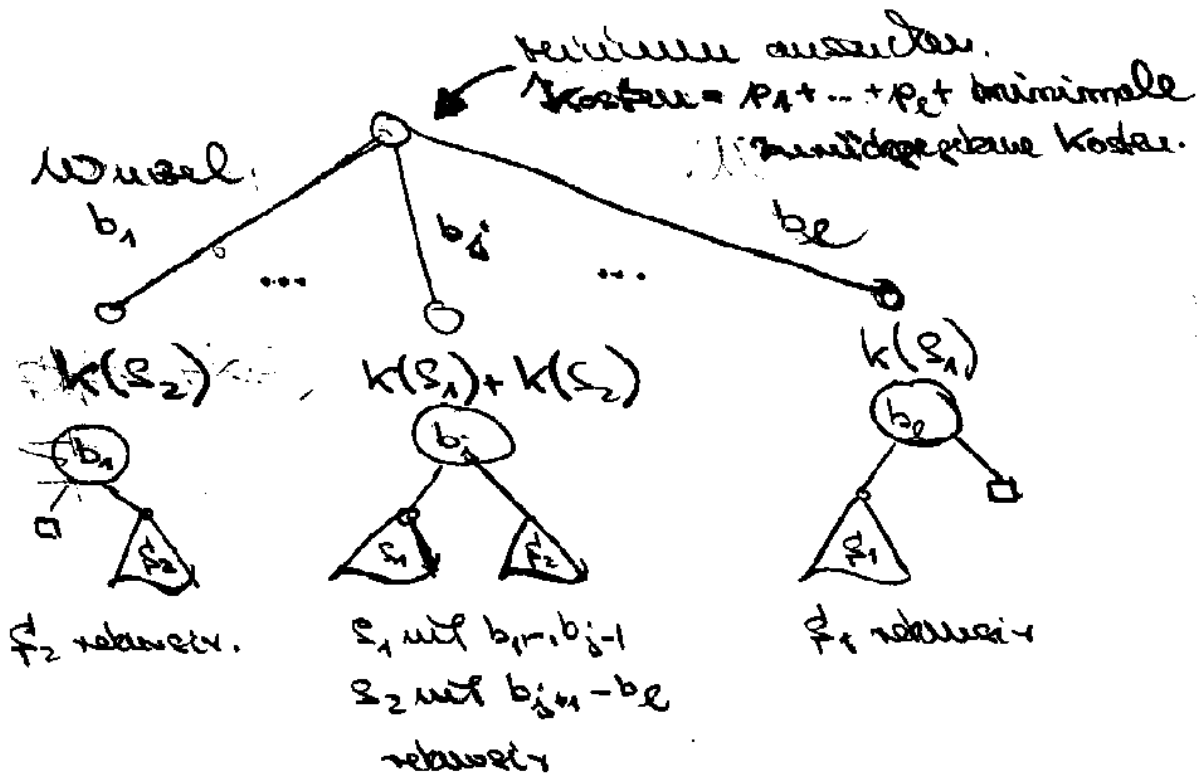 minimum aussuchen.
Kosten = p₁ + ... + p_l + minimale
zurückgegebene Kosten.
Wurzel.
b₁
b_j
b_l
...
...
k(S₂)
k(S₁) + k(S₂)
k(S₁)
b₁
b_j
b_l
S₂
S₁
S₂
S₁
S₂ rekursiv.
S₁ mit b₁, …, b_{j-1}
S₁ rekursiv
S₂ mit b_{j+1} – b_l
rekursiv